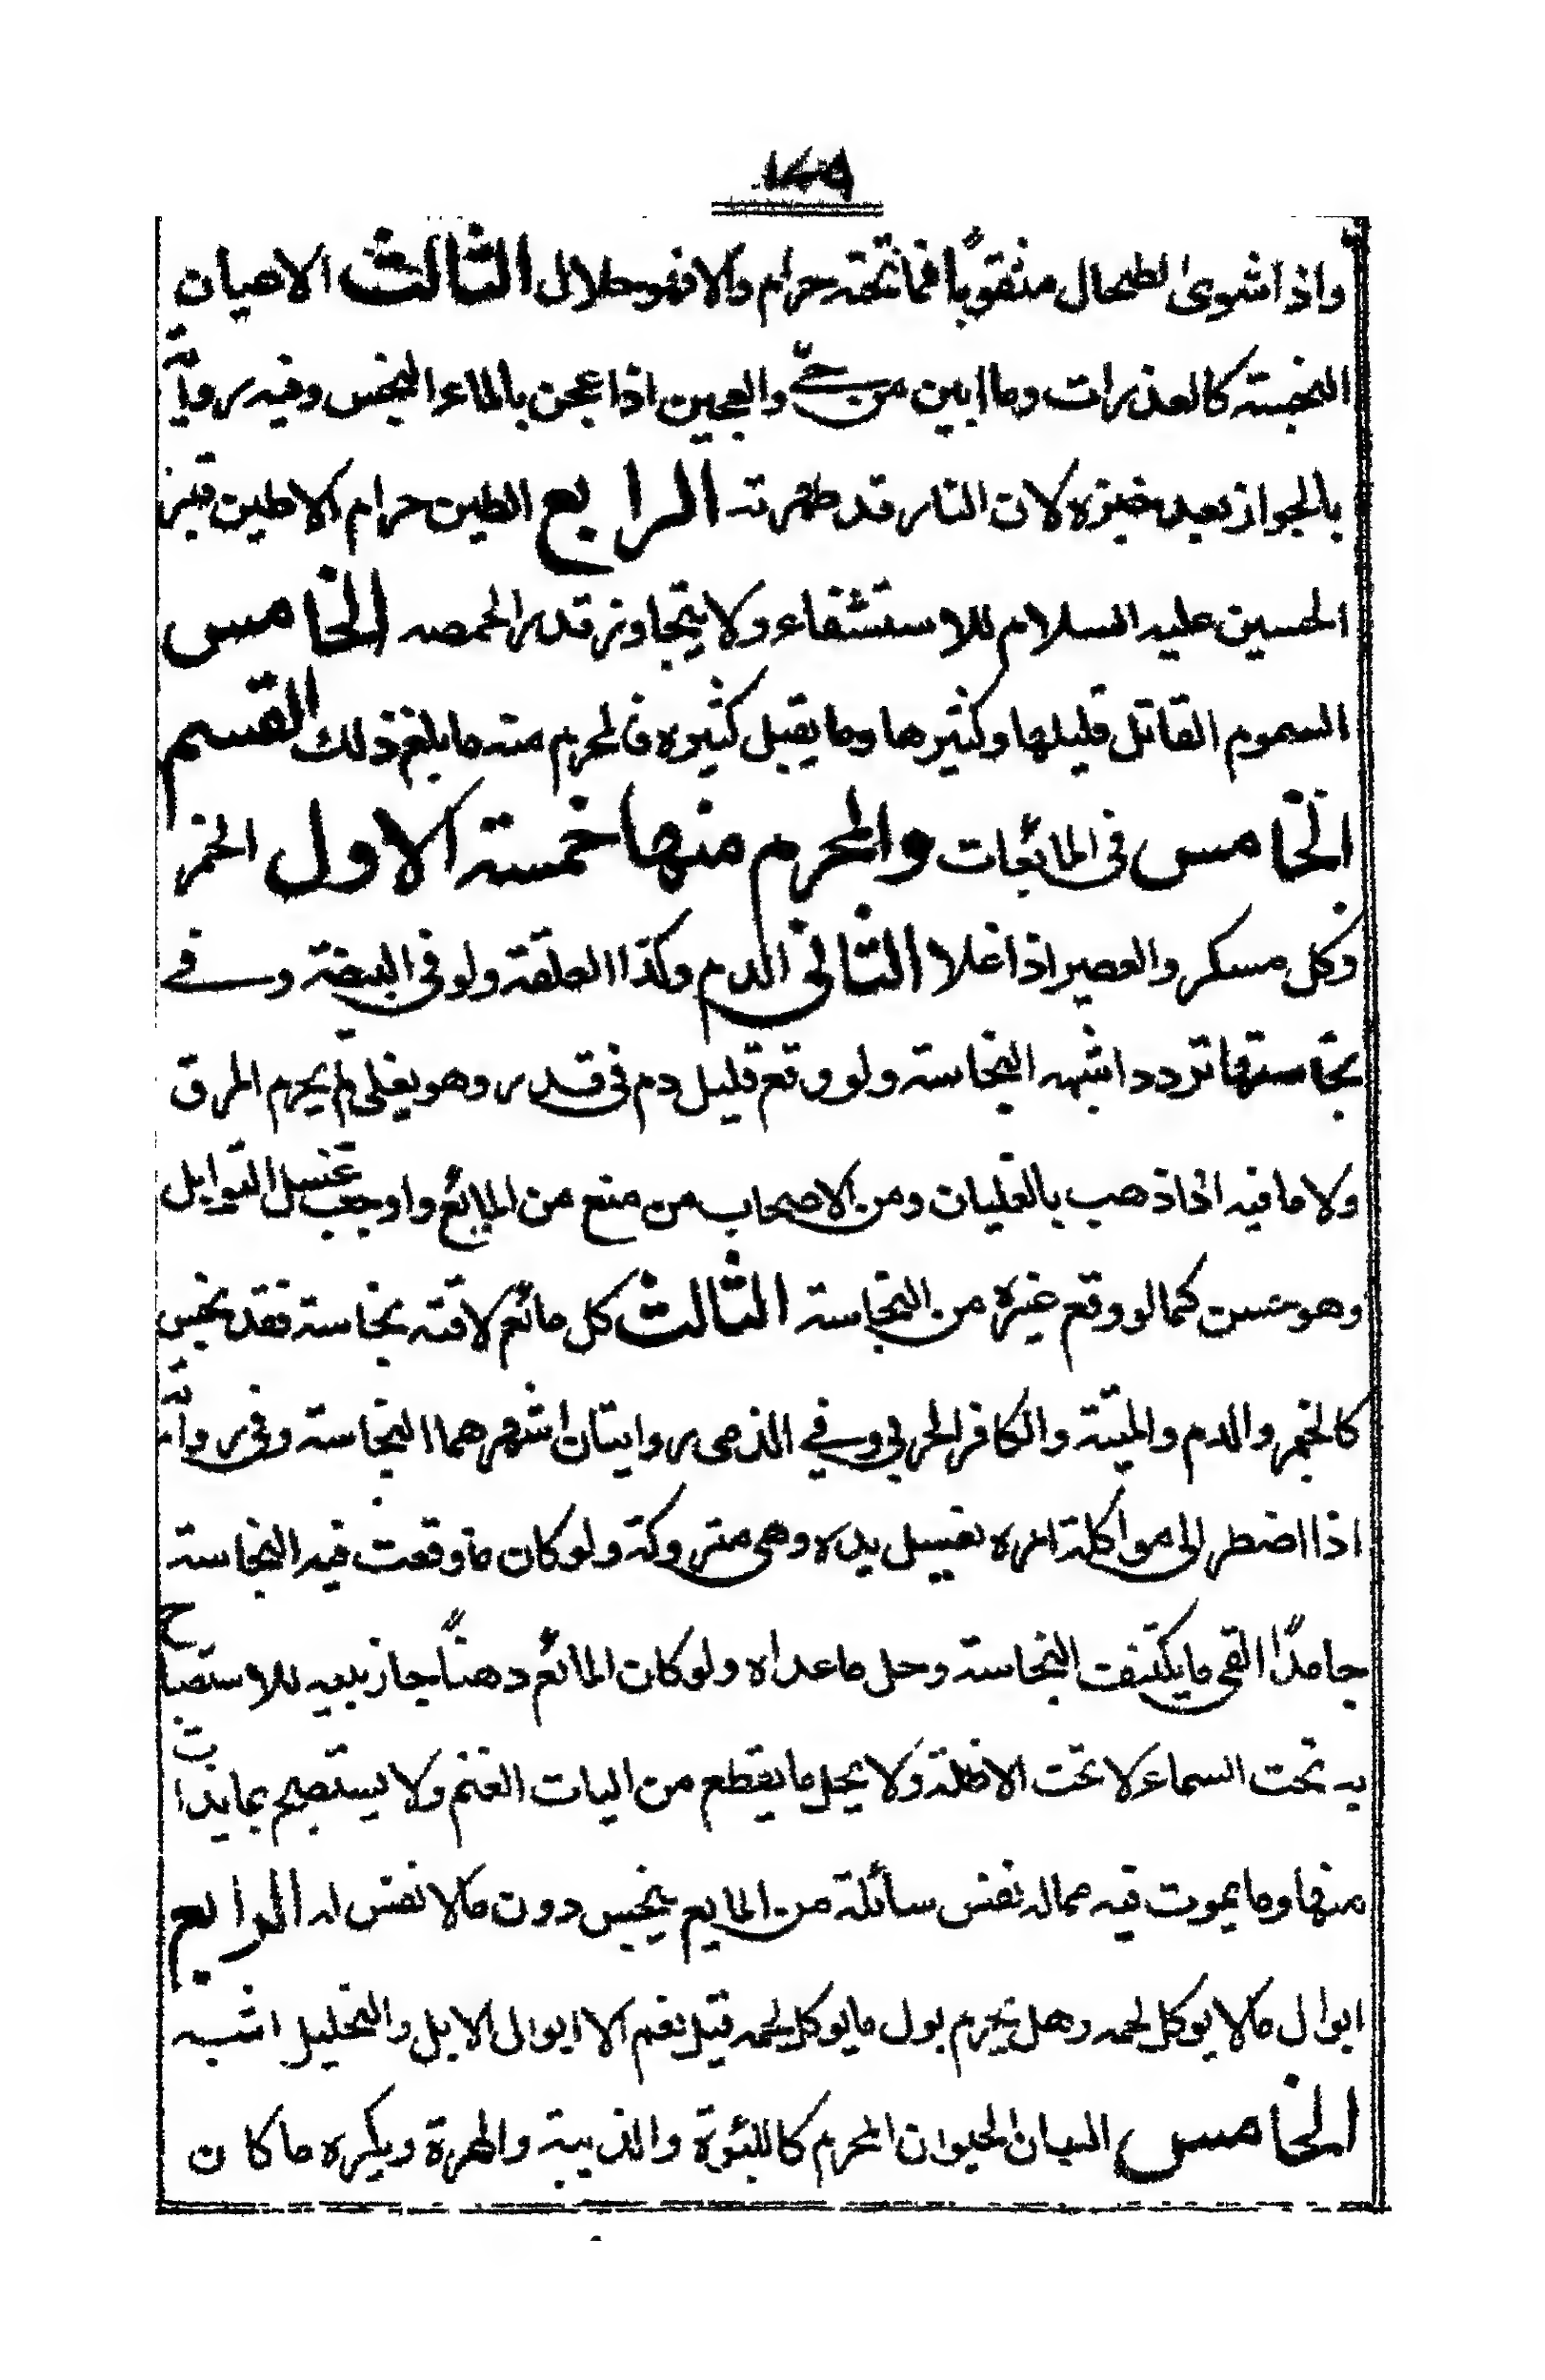 ١٤٩
واذا شوى الطحال مثقوبًا فما تحته حرام والا فهو حلال الثالث الاعيان
النجسة كالعذرات وما ابين من حيّ والعجين اذا عجن بالماء النجس وفيه رواية
بالجواز بعد خبزه لان النار قد طهرته الرابع الطين حرام الا طين قبر
الحسين عليه السلام للاستشفاء ولا يتجاوز قدر الحمصه الخامس
السموم القاتل قليلها وكثيرها وما يقتل كثيره فالمحرم منه ما بلغ ذلك القسم
الخامس في المائعات والمحرم منها خمسة الاول الخمر
وكل مسكر والعصير اذا غلا الثاني الدم وكذا العلقة ولو في البيضة وفي
نجاستها تردد اشبهه النجاسة ولو وقع قليل دم في قدر وهو يغلى لم يحرم المرق
ولا ما فيه اذا ذهب بالغليان ومن الاصحاب من منع من المائع واوجب غسل التوابل
وهو حسن كما لو وقع غيره من النجاسة الثالث كل مائع لاقته نجاسة فقد نجس
كالخمر والدم والميتة والكافر الحربي وفي الذمى روايتان اشهرهما النجاسة وفي رواية
اذا اضطر الى مواكلته امره بغسل يده وهى متروكة ولو كان ما وقعت فيه النجاسة
جامدًا القى ما يكتنف النجاسة وحل ما عداه ولو كان المائع دهنًا جاز بيعه للاستصباح
به تحت السماء لا تحت الاظلة ولا يحل ما يقطع من اليات الغنم ولا يستصبح بما يذاب
منها وما يموت فيه مماله نفس سائلة من المايع ينجس دون ما لا نفس له الرابع
ابوال ما لا يوكل لحمه وهل يحرم بول ما يوكل لحمه قيل نعم الا ابوال الابل والتحليل اشبه
الخامس البان الحيوان المحرم كاللبوة والذيبة والهرة ويكره ما كان